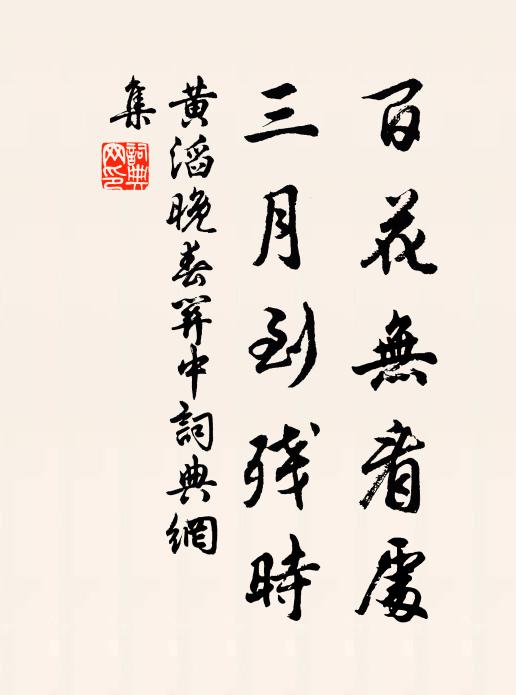 百花無看處
三月到残時
黄滔晚春關中詞典網
集
詞典
网印